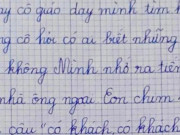 ay cô giáo dạy mình tìm h
ng cô hỏi có ai biết những
không Minh nhỏ ra tiến
nhà ông ngoại Con chim
câu "có khách, có khách